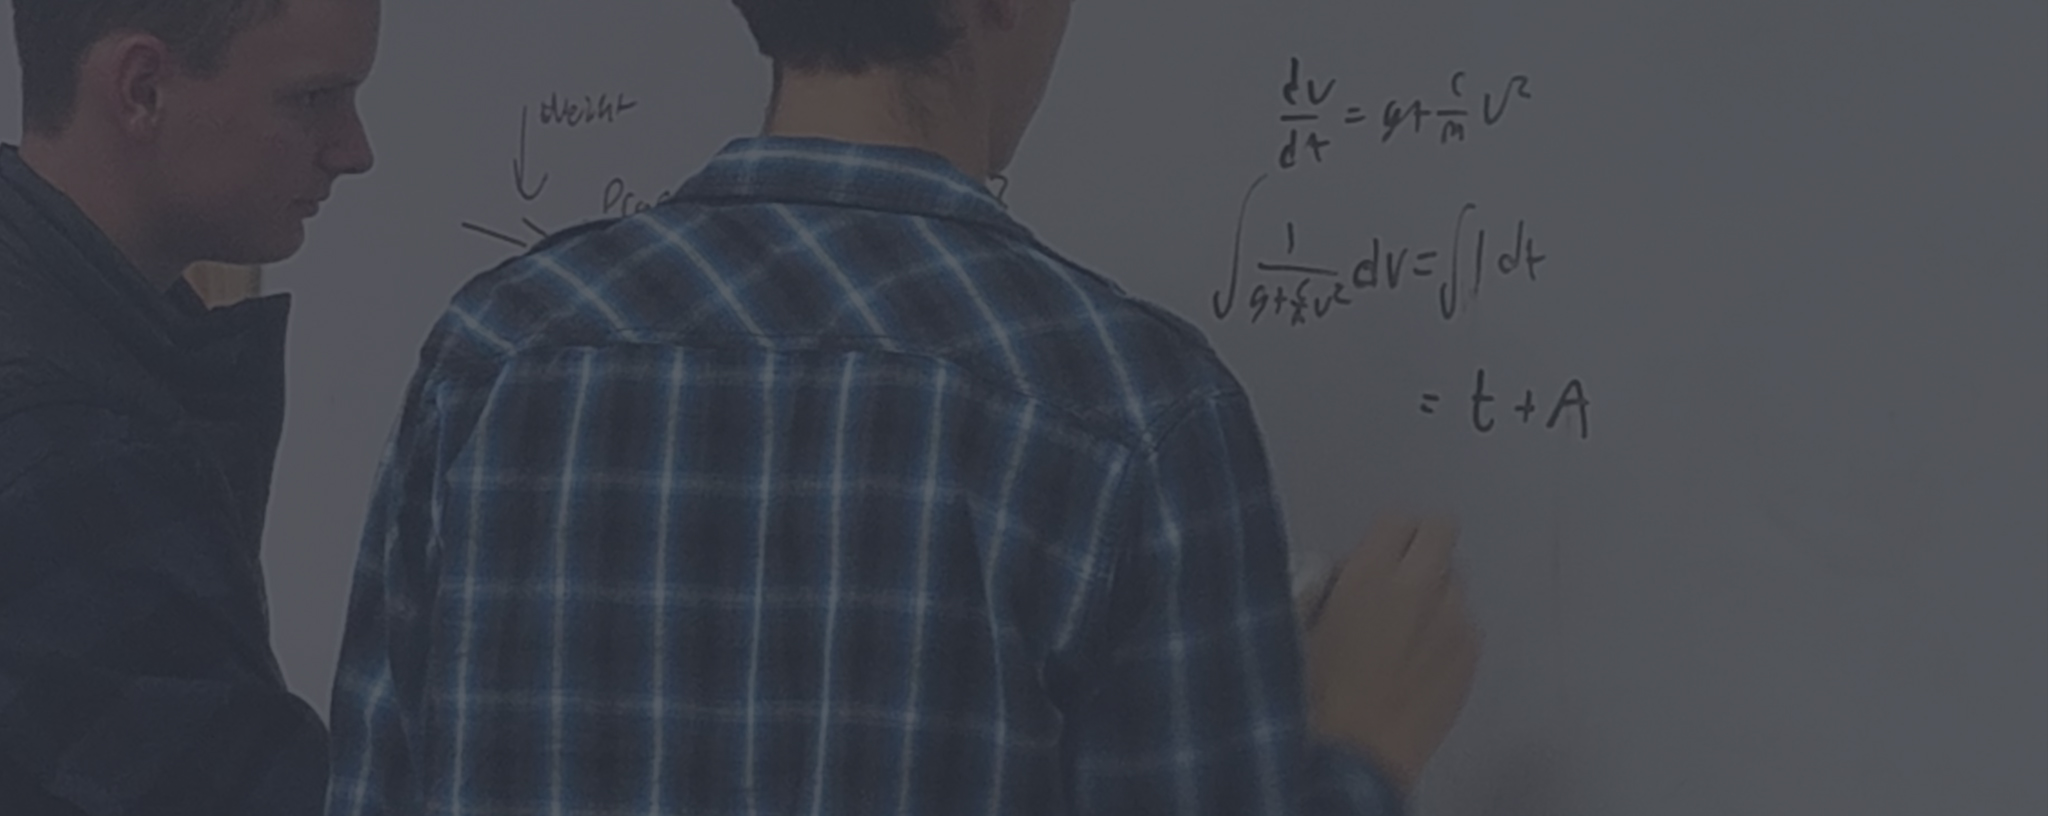 Weight
dv/dt = g + c/m v²
∫ 1/(g + c/m v²) dv = ∫ 1 dt
= t + A